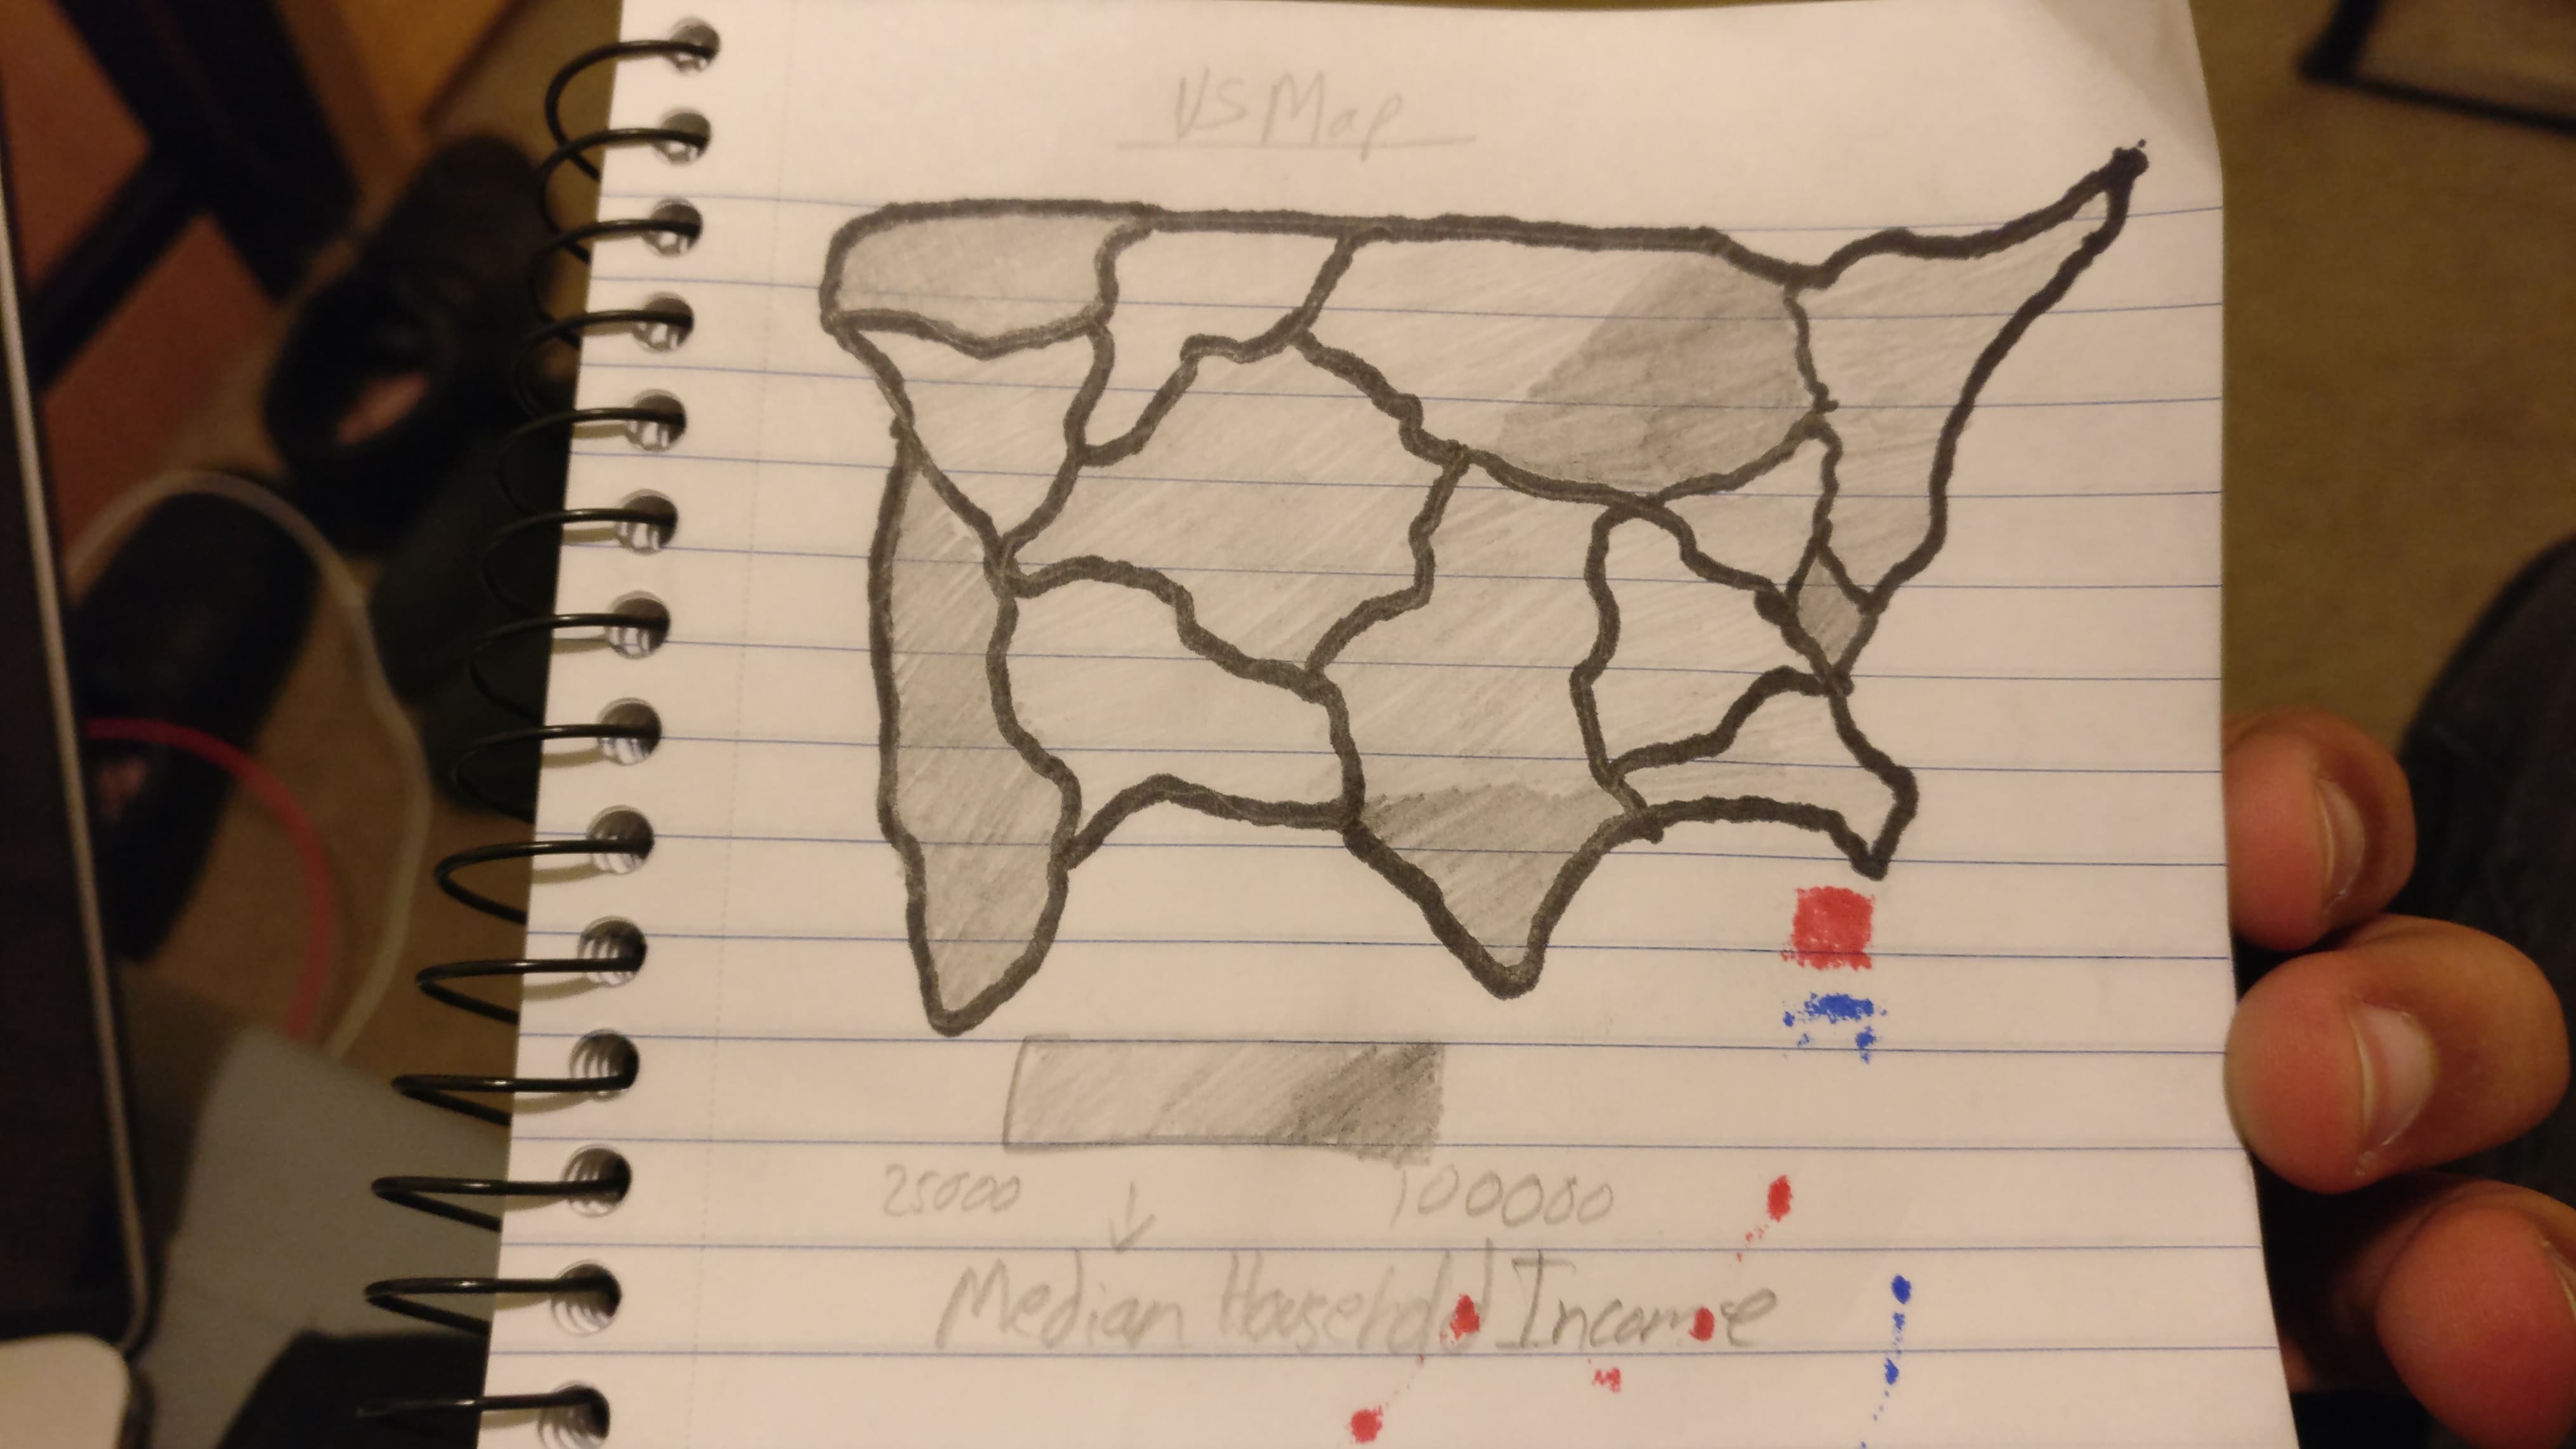 US Map
25000 100000
Median Household Income